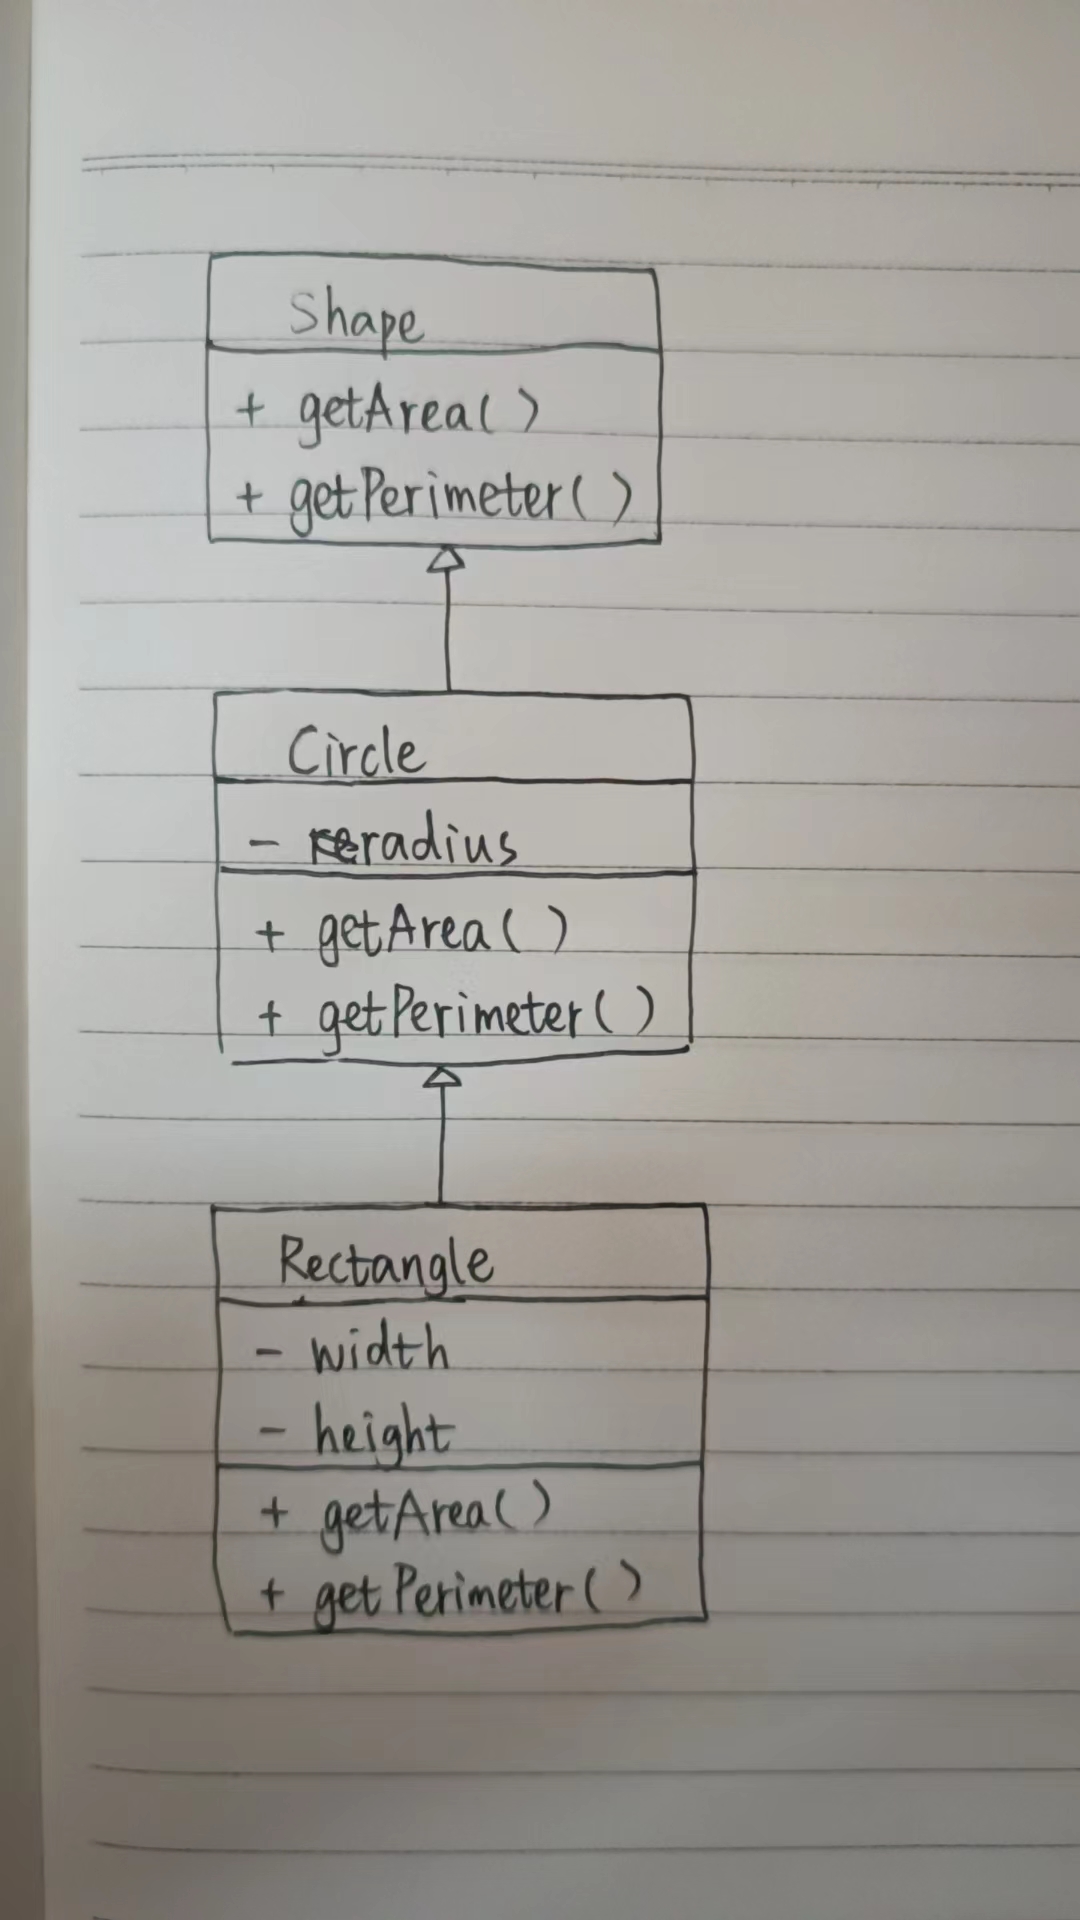 Shape
+ getArea()
+ getPerimeter()
Circle
- radius
+ getArea()
+ getPerimeter()
Rectangle
- width
- height
+ getArea()
+ getPerimeter()